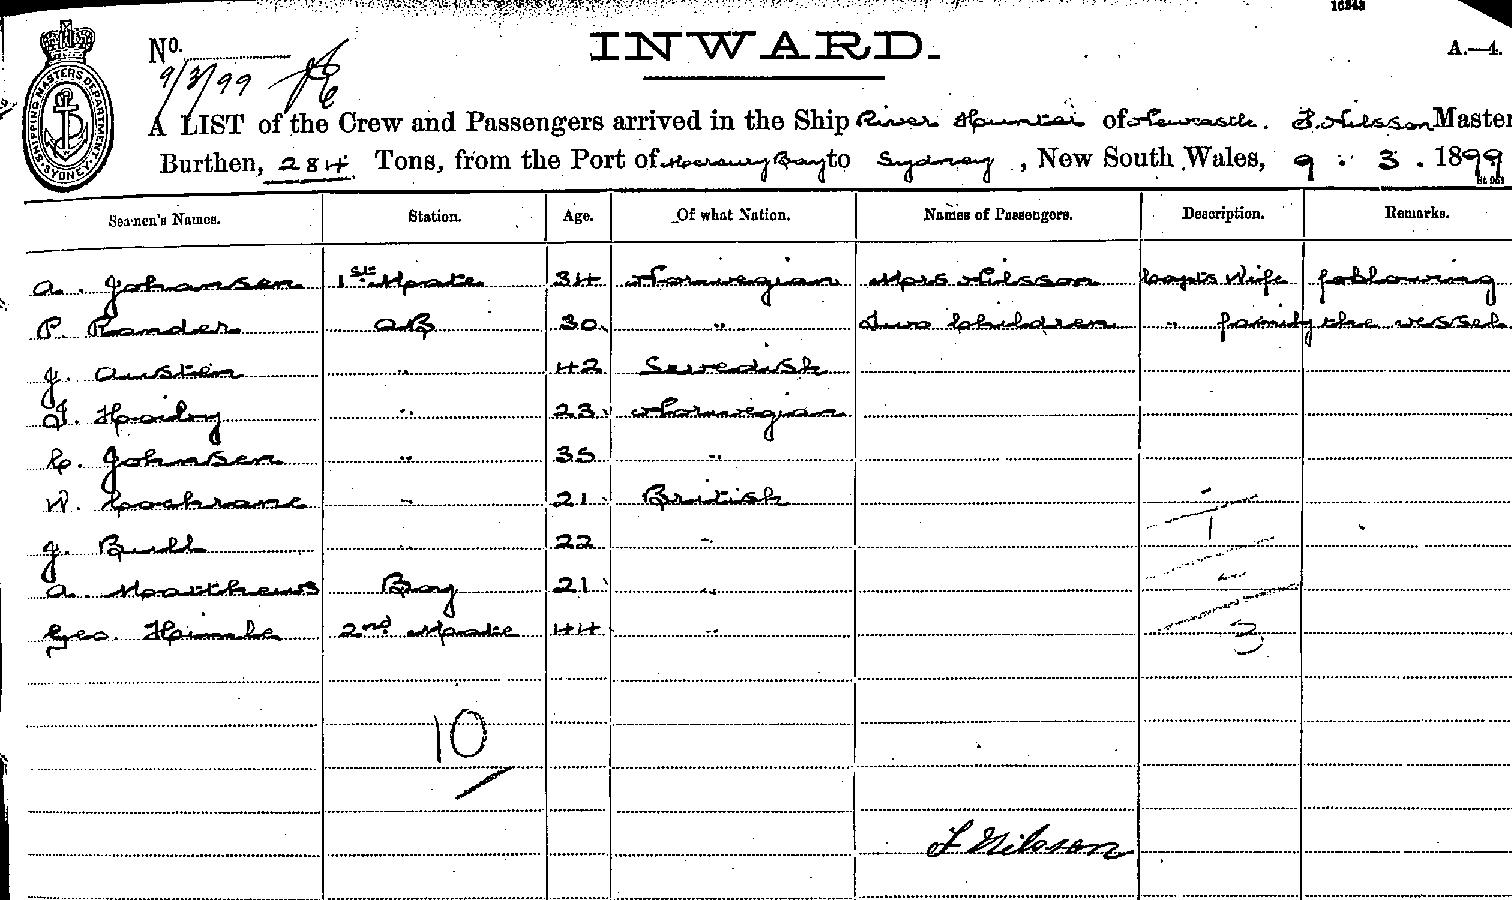 16343
No.
INWARD.
A.—4.
9/3/99
SHIPPING MASTERS DEPARTMENT SYDNEY
A LIST of the Crew and Passengers arrived in the Ship River Hunter of Newcastle. F. Nilsson Master
Burthen, 284 Tons, from the Port of Hervey Bay to Sydney, New South Wales, 9 . 3 . 1899
Seamen's Names. Station. Age. Of what Nation. Names of Passengers. Description. Remarks.
A. Johansen 1st Mate 34 Norwegian Mrs Nilsson Capts Wife following
P. Rander AB 30 " Two Children " family the vessel
J. Austen " 42 Swedish
" 23 Norwegian
C. Johnsen " 35 "
W. Cochrane " 21 British
J. Bull " 22 "
1
A. Matthews Boy 21 "
2
Geo. 2nd Mate 44 "
3
10
F Nilsson